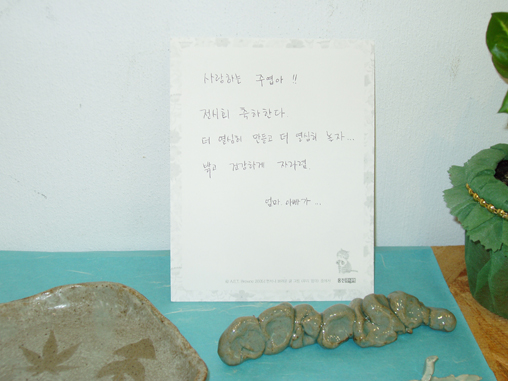 사랑하는 주엽아 !!
전시회 축하한다
더 열심히 만들고 더 열심히 놀자...
밝고 건강하게 자라렴
엄마 아빠가 ...